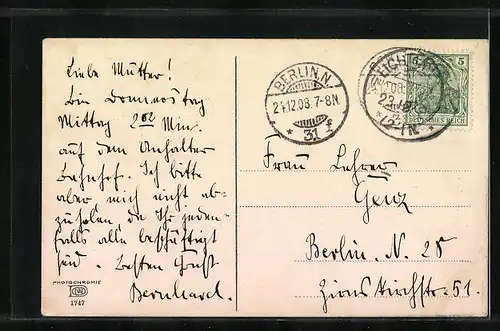 Liebe Mutter!
Bin Donnerstag
Mittag 2 02 Min.
auf dem Anhalter
Bahnhof. Ich bitte
aber mich nicht ab-
zuholen, da Ihr jeden-
falls alle beschäftigt
seid. Besten Gruß
Bernhard.
PHOTOCHROMIE
1747
BERLIN.N.
24.12.08.7-8N.
* 31 f
5
DEUTSCHES REICH
Frau Lehrer
Genz
Berlin. N. 28
Zionskirchstr. 51.